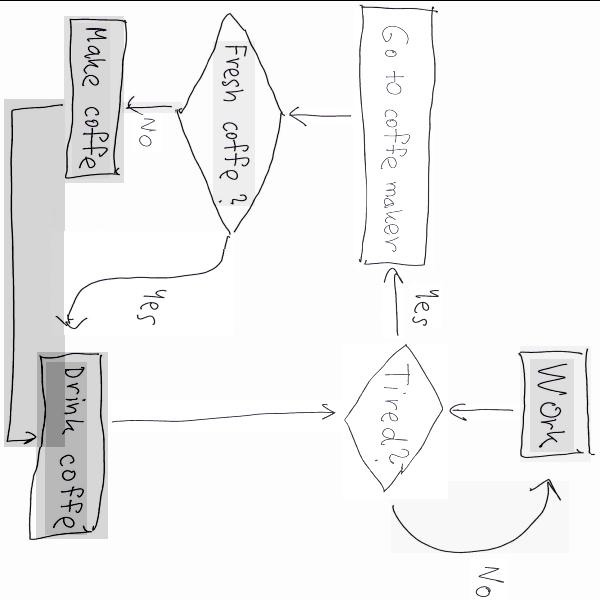 Work
Tired?
No
Yes
Go to coffe maker
Fresh coffe?
No
Make coffe
Yes
Drink coffe